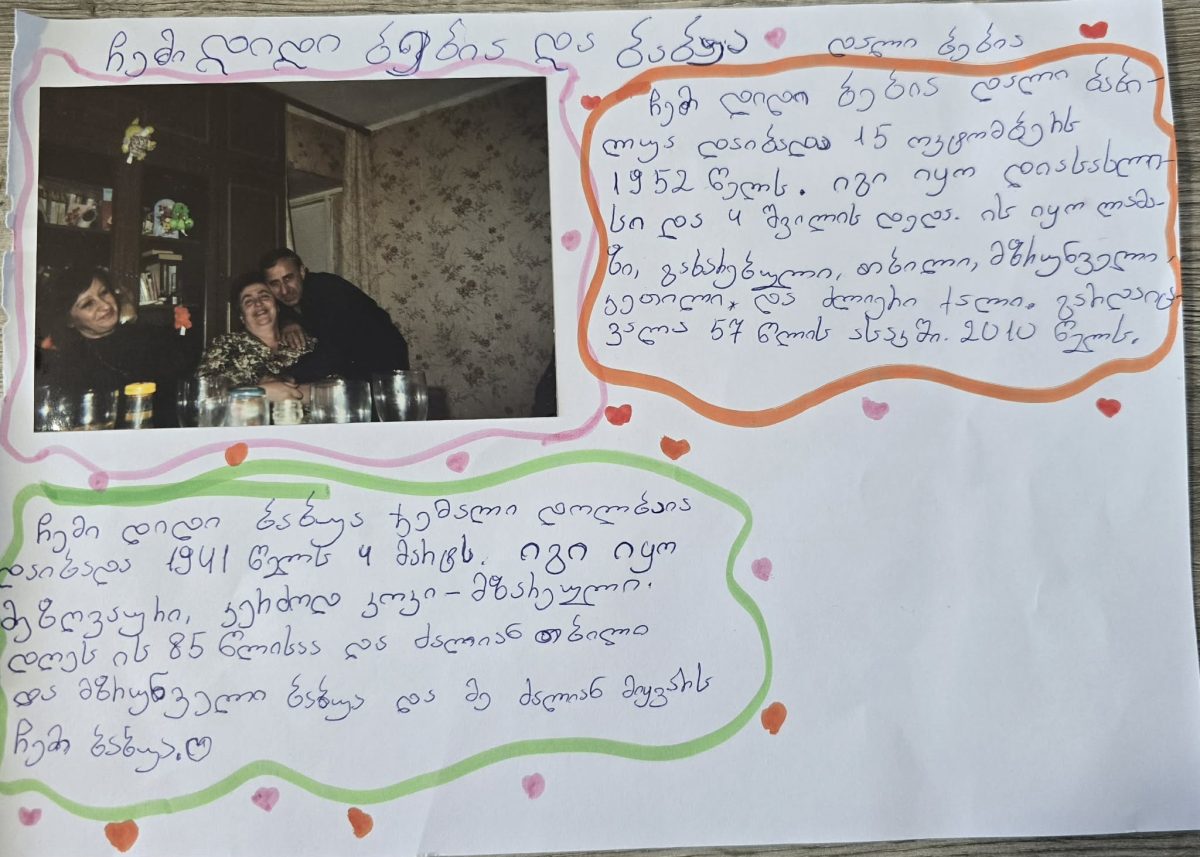 ჩემი დიდი ბებია და ბაბუა
დალი ბებია
ჩემი დიდი ბებია დალი ბაბი-
ლუა დაიბადა 15 ოქტომბერს
1952 წელს. იგი იყო დიასახლი-
სი და 4 შვილის დედა. ის იყო ლამა-
ზი, გახარებული, თბილი, მზრუნველი,
კეთილი, და ძლიერი ქალი. გარდაიც-
ვალა 57 წლის ასაკში. 2010 წელს.
ჩემი დიდი ბაბუა ჯემალი დოლბაია
დაიბადა 1941 წელს 4 მარტს. იგი იყო
მეზღვაური, კერძოდ კოკი-მზარეული.
დღეს ის 85 წლისაა და ძალიან თბილი
და მზრუნველი ბაბუა და მე ძალიან მიყვარს
ჩემი ბაბუა.